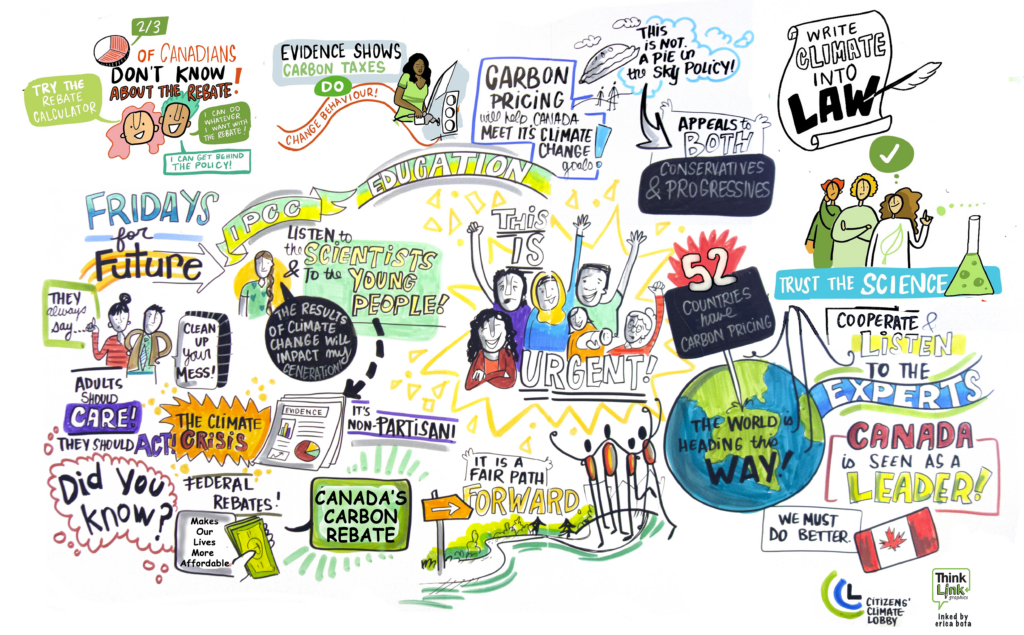 2/3
OF CANADIANS
DON'T KNOW
ABOUT THE REBATE!
TRY THE
REBATE
CALCULATOR
I CAN DO
WHATEVER
I WANT WITH
THE REBATE!
I CAN GET BEHIND
THE POLICY!
EVIDENCE SHOWS
CARBON TAXES
DO
CHANGE BEHAVIOUR!
CARBON
PRICING
will help CANADA
MEET IT'S CLIMATE
CHANGE
goals!
THIS
IS NOT
A PIE in
the SKY POLICY!
APPEALS to
BOTH
CONSERVATIVES
& PROGRESSIVES
WRITE
CLIMATE
INTO
LAW
TRUST THE SCIENCE
FRIDAYS
for
Future
IPCC
EDUCATION
LISTEN to
the SCIENTISTS
& to the
YOUNG
PEOPLE!
THE RESULTS
OF CLIMATE
CHANGE will
IMPACT my
GENERATION!
THEY
always
SAY...
CLEAN
UP
your
MESS!
ADULTS
SHOULD
CARE!
THEY SHOULD ACT!
THE CLIMATE
CRISIS
EVIDENCE
IT'S
NON-PARTISAN!
THIS
IS
URGENT!
52
COUNTRIES
have
CARBON PRICING
THE WORLD is
HEADING this
WAY!
COOPERATE &
LISTEN
TO THE
EXPERTS
CANADA
is SEEN AS A
LEADER!
WE MUST
DO BETTER.
Did you
know?
FEDERAL
REBATES!
Makes
Our
Lives
More
Affordable
CANADA'S
CARBON
REBATE
IT IS A
FAIR PATH
FORWARD.
CCL
CITIZENS'
CLIMATE
LOBBY
Think
Link
graphics
inked by
erica bota